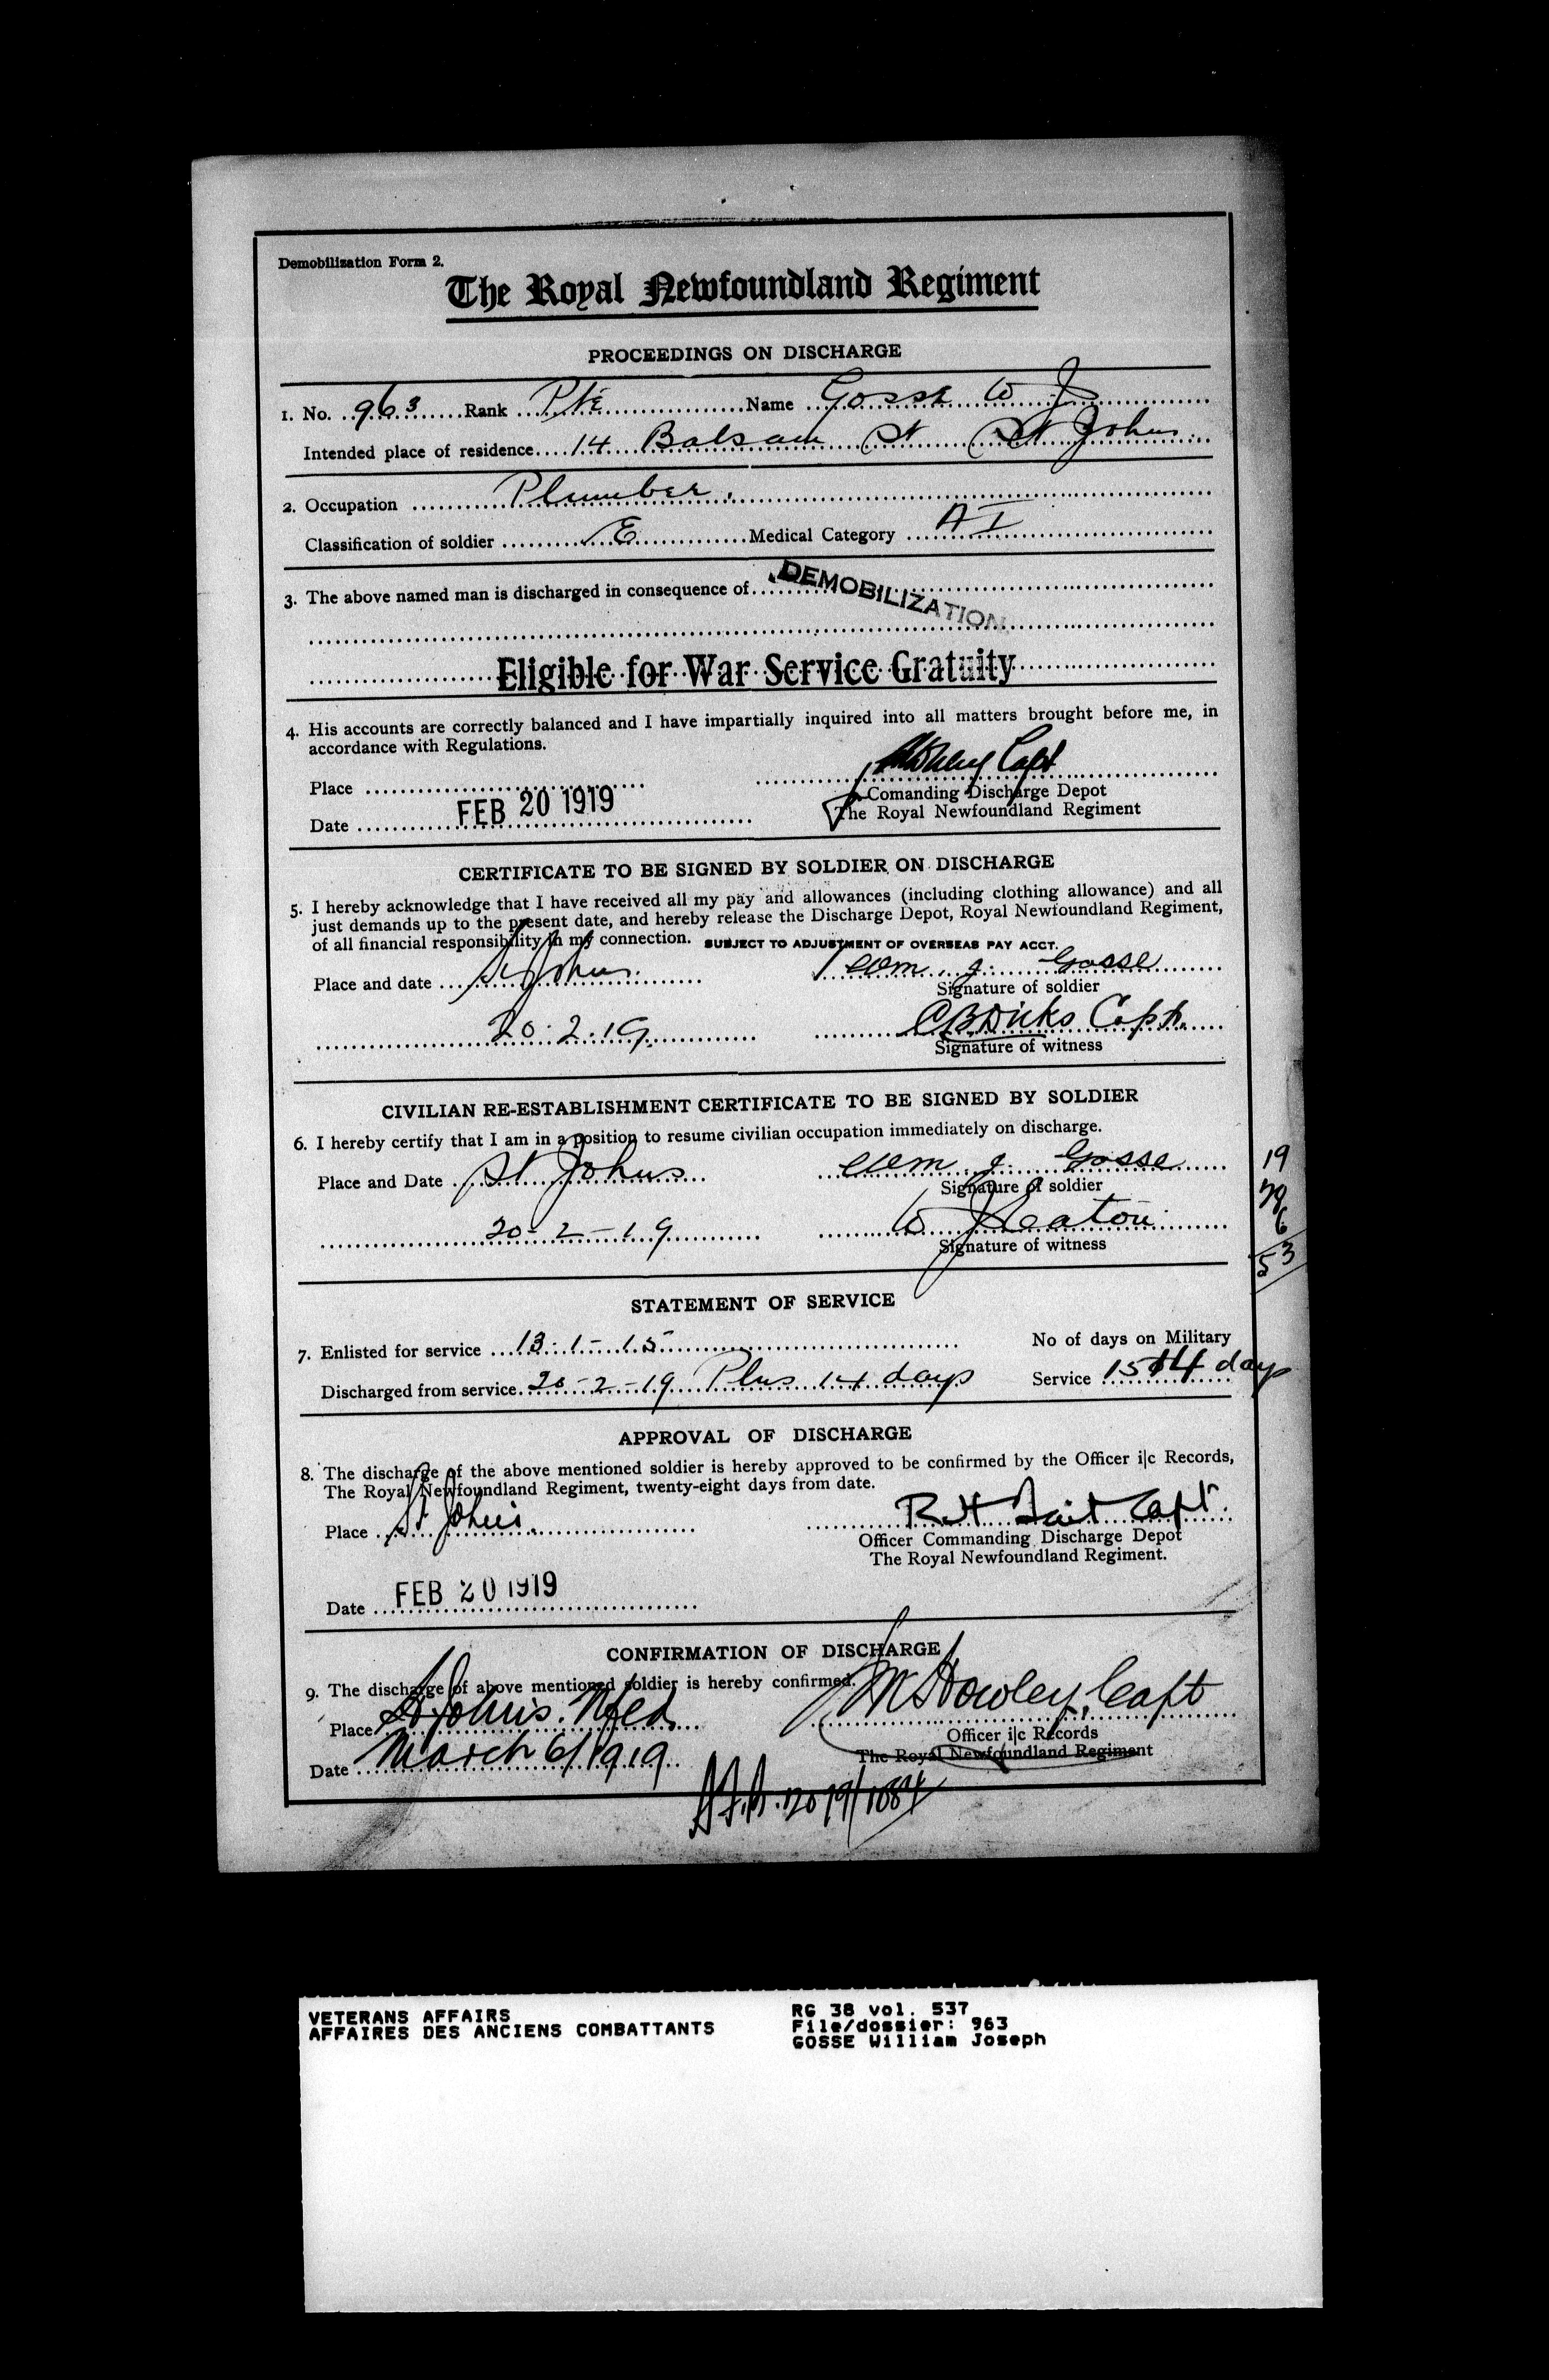 Demobilization Form 2.
The Royal Newfoundland Regiment
PROCEEDINGS ON DISCHARGE
1. No. 963 Rank Pte Name Gosse W J
Intended place of residence 14 Balsam St St Johns
2. Occupation Plumber.
Classification of soldier E Medical Category A I
3. The above named man is discharged in consequence of DEMOBILIZATION
Eligible for War Service Gratuity
4. His accounts are correctly balanced and I have impartially inquired into all matters brought before me, in
accordance with Regulations.
Place Capt
Comanding Discharge Depot
Date FEB 20 1919 The Royal Newfoundland Regiment
CERTIFICATE TO BE SIGNED BY SOLDIER ON DISCHARGE
5. I hereby acknowledge that I have received all my pay and allowances (including clothing allowance) and all
just demands up to the present date, and hereby release the Discharge Depot, Royal Newfoundland Regiment,
of all financial responsibility in my connection. SUBJECT TO ADJUSTMENT OF OVERSEAS PAY ACCT.
Place and date St Johns. Wm J. Gosse
Signature of soldier
20.2.19. C B Dicks Capt.
Signature of witness
CIVILIAN RE-ESTABLISHMENT CERTIFICATE TO BE SIGNED BY SOLDIER
6. I hereby certify that I am in a position to resume civilian occupation immediately on discharge.
Place and Date St Johns Wm J. Gosse
Signature of soldier
20-2-19 W Heaton
Signature of witness
19
6
53
STATEMENT OF SERVICE
7. Enlisted for service 13-1-15 No of days on Military
Discharged from service 20-2-19 Plus 14 days Service 1514 days
APPROVAL OF DISCHARGE
8. The discharge of the above mentioned soldier is hereby approved to be confirmed by the Officer i|c Records,
The Royal Newfoundland Regiment, twenty-eight days from date.
Place St Johns. R H Tait Capt.
Officer Commanding Discharge Depot
The Royal Newfoundland Regiment.
Date FEB 20 1919
CONFIRMATION OF DISCHARGE
9. The discharge of above mentioned soldier is hereby confirmed.
Place St Johns. Nfld M Howley, Capt
Officer i|c Records
Date March 6/1919 The Royal Newfoundland Regiment
2079/1884
VETERANS AFFAIRS
AFFAIRES DES ANCIENS COMBATTANTS
RG 38 vol. 537
File/dossier: 963
GOSSE William Joseph